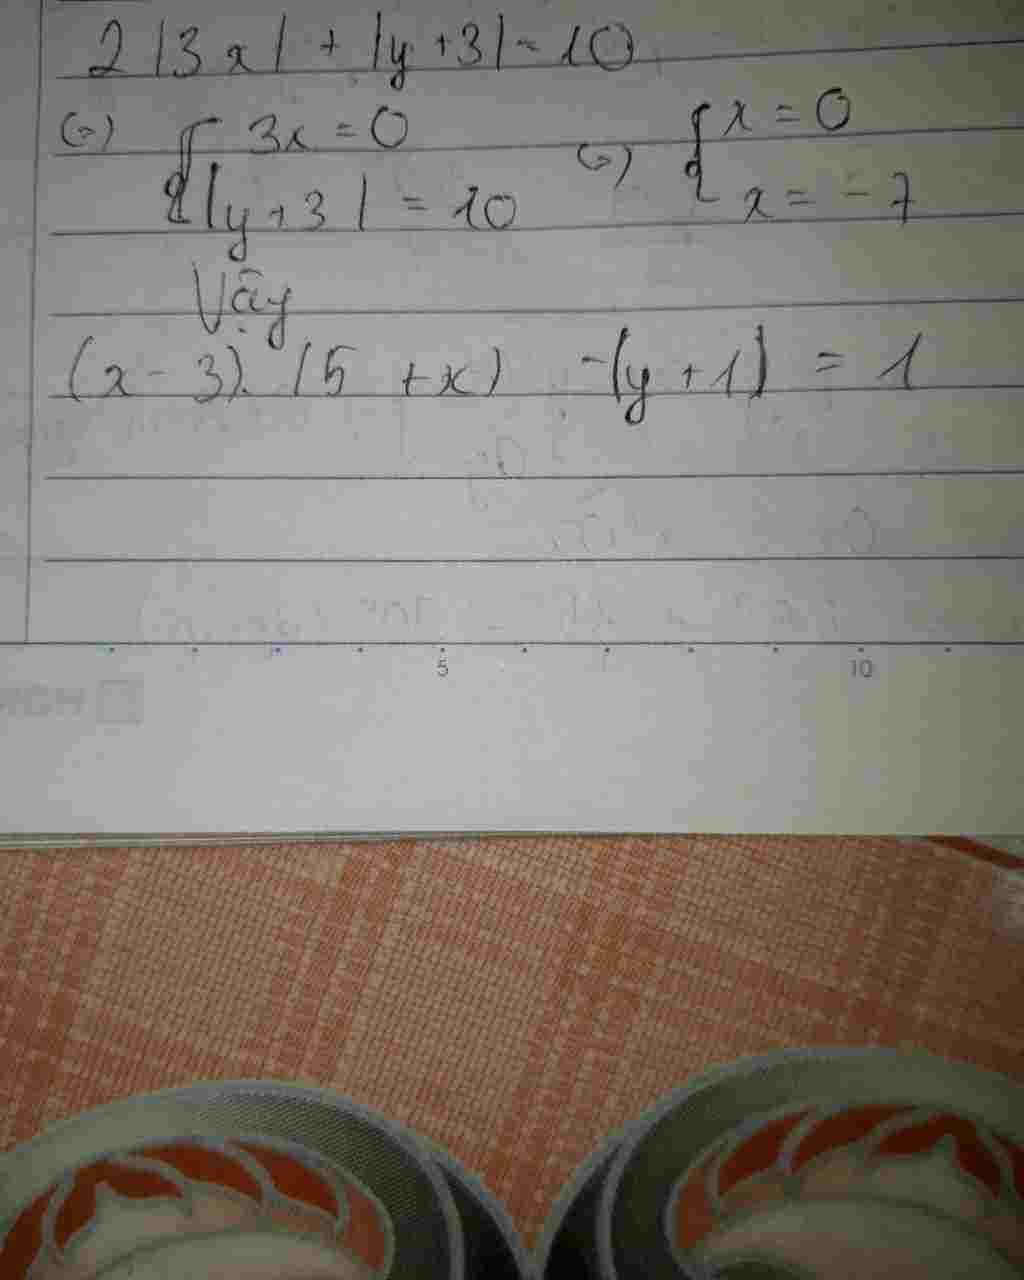 2|3x| + |y+3| = 10
(=) { 3x = 0 (=) { x = 0
|y+3| = 10 x = -7
Vậy
(x-3).(5+x) -(y+1) = 1
5 10